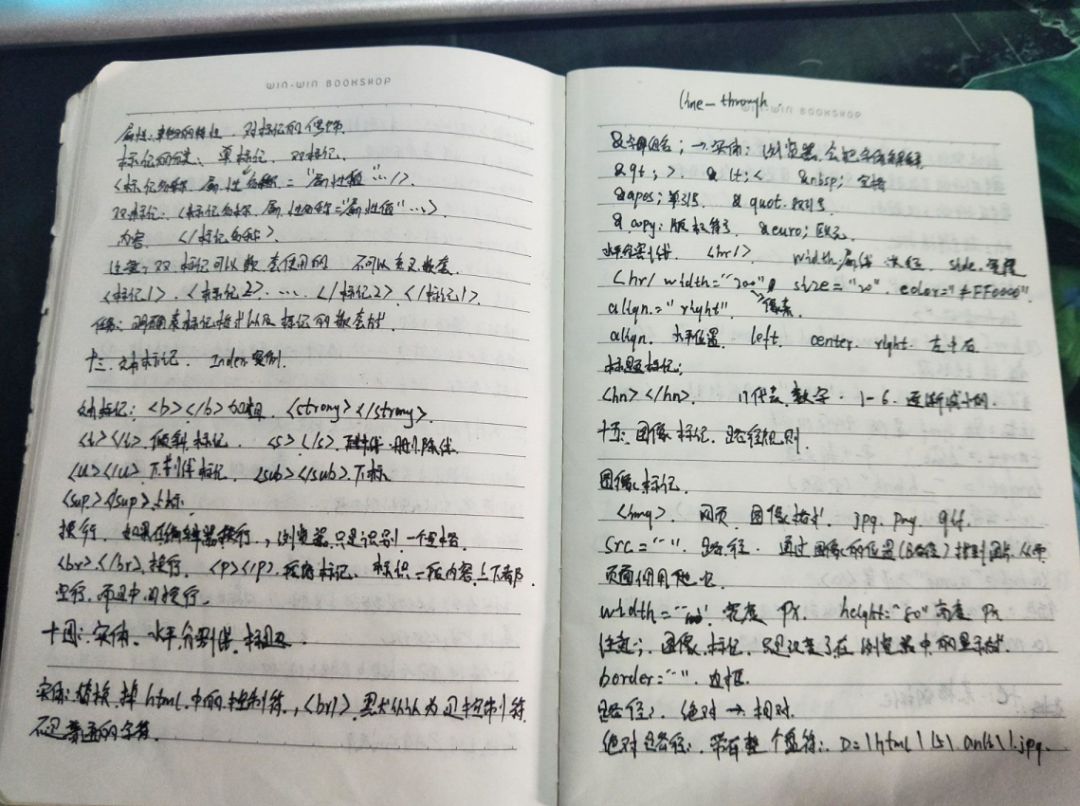 WIN-WIN BOOKSHOP
属性：事物的特性，对标记的修饰
标记的分类：单标记，双标记.
<标记名称 属性名称="属性值"…/>.
双标记：<标记名称 属性名称="属性值"…>
内容 </标记名称>.
注意：双标记可以嵌套使用的 不可以交叉嵌套.
<标记1>.<标记2>.…</标记2>.</标记1>.
任务：明确表标记格式以及标记的嵌套
十三.文本标记. Index案例.
文本标记：<b></b>加粗. <strong></strong>.
<i></i>.倾斜标记. <s></s>. 删除线.
<u></u>下划线标记. <sub></sub>.下标.
<sup></sup>上标.
换行. 如果在编辑器换行，浏览器只是识别一个空格.
<br></br>.换行. <p></p>.段落标记. 标识一段内容,上下都
空行，而且中间换行.
十四：实体.水平分割线.标题.
实体：替换掉html中的控制符，<br/>.默认为是控制符
不是普通的字符.
line-through.
WIN-WIN BOOKSHOP
&字母组合; →实体：浏览器会把实体解释
&gt; > &lt; < &nbsp; 空格
&apos; 单引号. &quot. 双引号.
&copy; 版权符号 &euro; 欧元.
水平分割线. <hr/>. width 属性
<hr/ width="200" size="20". color="#FF0000".
align="right" 像素.
align. 水平位置. left. center. right. 左中右
标题标记;
<hn></hn>. n代表数字. 1-6. 逐渐减小的.
十五：图像标记. 路径规则.
图像标记.
<img>. 网页图像格式. jpg. png. gif.
src="". 路径. 通过图像的位置(路径)找到图片,
页面引用
width="" 宽度 px. height="50" 高度 px
注意; 图像标记，只是设置了在浏览器中的显示
border="". 边框.
路径：绝对→相对.
绝对路径：带有整个盘符：D:\html\